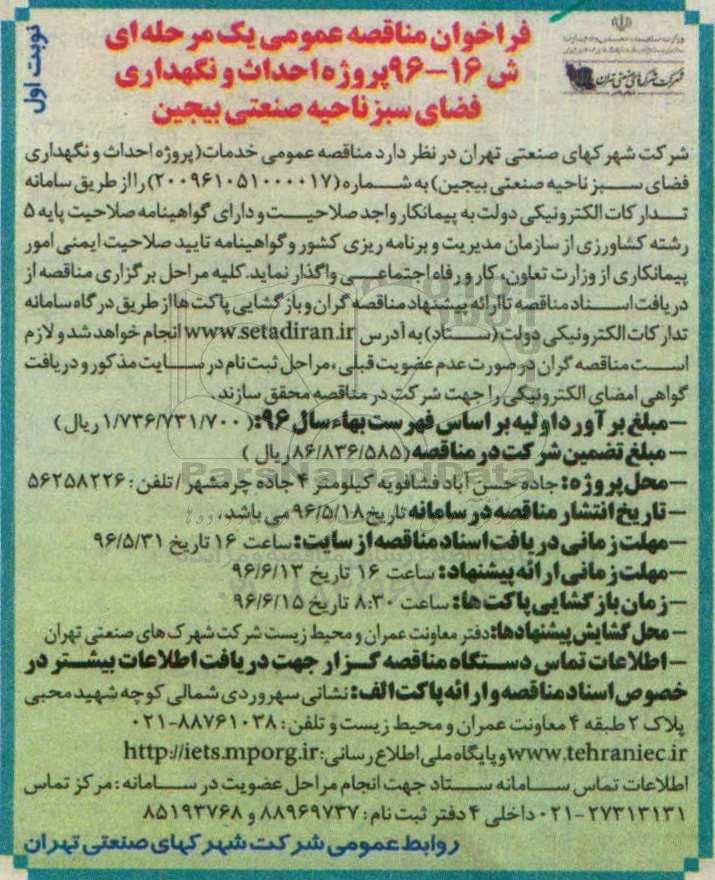 نوبت اول
فراخوان مناقصه عمومی یک مرحله ای
ش ۱۶-۹۶پروژه احداث و نگهداری
فضای سبز ناحیه صنعتی بیجین
شرکت شهرکهای صنعتی تهران
شرکت شهرکهای صنعتی تهران در نظر دارد مناقصه عمومی خدمات(پروژه احداث و نگهداری
فضای سبز ناحیه صنعتی بیجین) به شماره (۲۰۰۹۶۱۰۵۱۰۰۰۰۱۷) را از طریق سامانه
تدارکات الکترونیکی دولت به پیمانکار واجد صلاحیت و دارای گواهینامه صلاحیت پایه ۵
رشته کشاورزی از سازمان مدیریت و برنامه ریزی کشور و گواهینامه تایید صلاحیت ایمنی امور
پیمانکاری از وزارت تعاون، کار و رفاه اجتماعی واگذار نماید.کلیه مراحل برگزاری مناقصه از
دریافت اسناد مناقصه تا ارائه پیشنهاد مناقصه گران و بازگشایی پاکت ها از طریق درگاه سامانه
تدارکات الکترونیکی دولت (ستاد) به آدرس www.setadiran.ir انجام خواهد شد و لازم
است مناقصه گران در صورت عدم عضویت قبلی ، مراحل ثبت نام در سایت مذکور و دریافت
گواهی امضای الکترونیکی را جهت شرکت در مناقصه محقق سازند.
-مبلغ برآورد اولیه بر اساس فهرست بهاء سال ۹۶:( ۱/۷۳۶/۷۳۱/۷۰۰ ریال )
- مبلغ تضمین شرکت در مناقصه (۸۶/۸۳۶/۵۸۵ریال )
-محل پروژه: جاده حسن آباد فشافویه کیلومتر ۴ جاده چرمشهر / تلفن : ۵۶۲۵۸۲۲۶
- تاریخ انتشار مناقصه در سامانه تاریخ ۹۶/۵/۱۸ می باشد.
-مهلت زمانی دریافت اسناد مناقصه از سایت: ساعت ۱۶ تاریخ ۹۶/۵/۳۱
-مهلت زمانی ارائه پیشنهاد: ساعت ۱۶ تاریخ ۹۶/۶/۱۳
-زمان بازگشایی پاکت ها: ساعت ۸:۳۰ تاریخ ۹۶/۶/۱۵
- محل گشایش پیشنهادها: دفتر معاونت عمران و محیط زیست شرکت شهرک های صنعتی تهران
-اطلاعات تماس دستگاه مناقصه گزار جهت دریافت اطلاعات بیشتر در
خصوص اسناد مناقصه و ارائه پاکت الف: نشانی سهروردی شمالی کوچه شهید محبی
پلاک ۲ طبقه ۴ معاونت عمران و محیط زیست و تلفن : ۸۸۷۶۱۰۳۸-۰۲۱
www.tehraniec.ir و پایگاه ملی اطلاع رسانی: http://iets.mporg.ir
اطلاعات تماس سامانه ستاد جهت انجام مراحل عضویت در سامانه : مرکز تماس
۲۷۳۱۳۱۳۱-۰۲۱ داخلی ۴ دفتر ثبت نام : ۸۸۹۶۹۷۳۷ و ۸۵۱۹۳۷۶۸
روابط عمومی شرکت شهرکهای صنعتی تهران
ParsNamadData